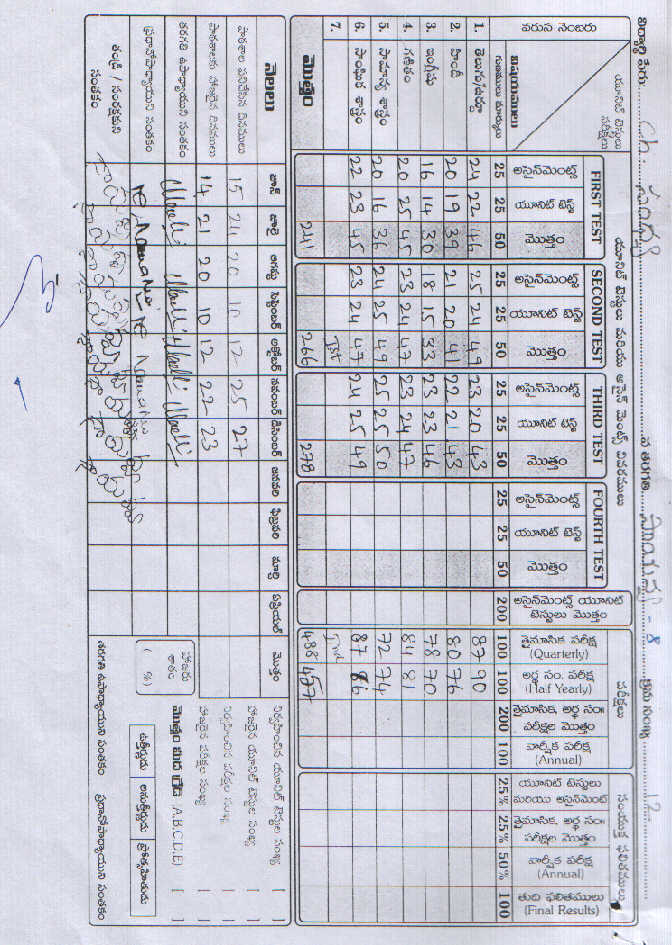 విద్యార్థి పేరు Ch. సంధ్య వ తరగతి క్రమ సంఖ్య 12
యూనిట్ టెస్టులు పరీక్షలు యూనిట్ టెస్టులు మరియు అసైన్ మెంట్స్ వివరములు పరీక్షలు సంయుక్త ఫలితములు
వరుస నెంబరు విషయములు గుణములు మార్కులు
FIRST TEST SECOND TEST THIRD TEST FOURTH TEST
అసైన్‌మెంట్స్ యూనిట్ టెస్ట్ మొత్తం అసైన్‌మెంట్స్ యూనిట్ టెస్ట్ మొత్తం అసైన్‌మెంట్స్ యూనిట్ టెస్ట్ మొత్తం అసైన్‌మెంట్స్ యూనిట్ టెస్ట్ మొత్తం
అసైన్‌మెంట్స్ యూనిట్ టెస్టులు మొత్తం
త్రైమాసిక పరీక్ష (Quarterly)
అర్ధ సం. పరీక్ష (Half Yearly)
త్రైమాసిక, అర్ధ సం॥ పరీక్షల మొత్తం
వార్షిక పరీక్ష (Annual)
యూనిట్ టెస్టులు మరియు అసైన్‌మెంట్
త్రైమాసిక, అర్ధ సం॥ పరీక్షల మొత్తం
వార్షిక పరీక్ష (Annual)
తుది ఫలితములు (Final Results)
25 25 50 25 25 50 25 25 50 25 25 50 200 100 100 200 100 25% 25% 50% 100
1. తెలుగు/ఉర్దూ 24 22 46 25 24 49 23 20 43 87 90
2. హిందీ 20 19 39 21 20 41 22 21 43 80 76
3. ఇంగ్లీషు 16 14 30 18 15 33 23 23 46 78 70
4. గణితం 20 25 45 23 24 47 23 24 47 84 81
5. సామాన్య శాస్త్రం 20 16 36 24 25 49 25 25 50 72 74
6. సాంఘిక శాస్త్రం 22 23 45 23 24 47 24 25 49 87 86
7. Ist
మొత్తం 241 266 278 488 477
నెలలు జూన్ జూలై ఆగష్టు సెప్టెంబర్ అక్టోబర్ నవంబర్ డిసెంబర్ జనవరి ఫిబ్రవరి మార్చి ఏప్రియల్ మొత్తం
పాఠశాల పనిచేసిన దినములు 15 24 20 10 12 25 27
పాఠశాలకు హాజరైన దినములు 14 21 20 10 12 22 23
హాజరు శాతం ( %)
తరగతి ఉపాధ్యాయుని సంతకం
(ప్రధానోపాధ్యాయుని సంతకం)
తండ్రి / సంరక్షకుని సంతకం
నిర్వహించిన యూనిట్ టెస్టుల సంఖ్య
హాజరైన యూనిట్ టెస్టుల సంఖ్య
నిర్వహించిన పరీక్షల సంఖ్య
హాజరైన పరీక్షల సంఖ్య
మొత్తం మీద గ్రేడ్ (A.B.C.D.E)
ఉత్తీర్ణుడు అనుత్తీర్ణుడు ప్రోత్సహితుడు
తరగతి ఉపాధ్యాయుని సంతకం ప్రధానోపాధ్యాయుని సంతకం